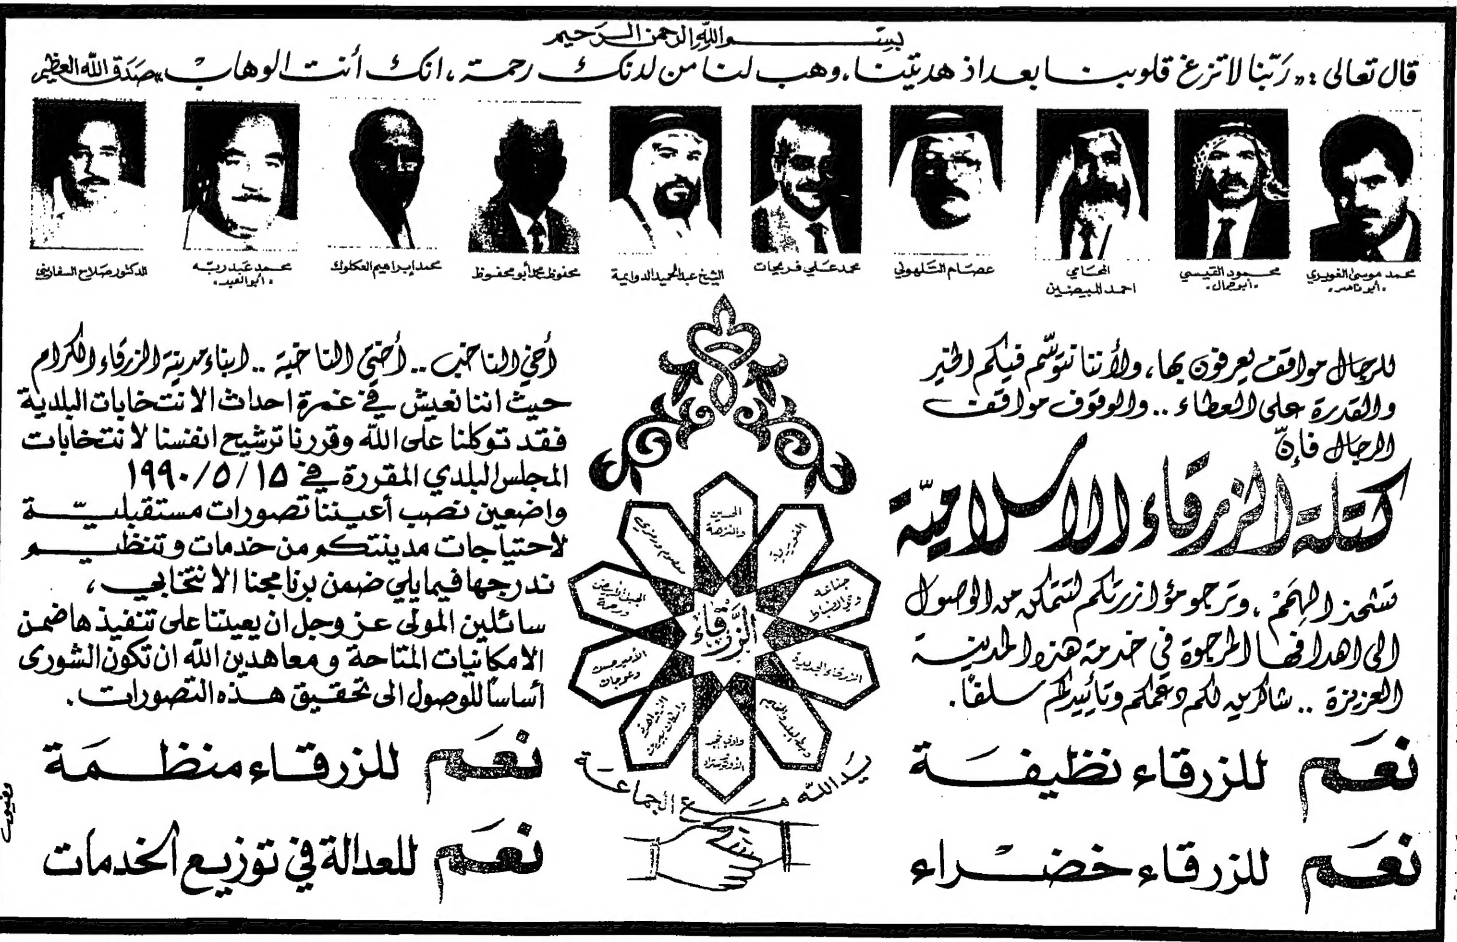 بسم الله الرحمن الرحيم
قال تعالى : «ربّنا لا تزغ قلوبنا بعد اذ هديتنا ، وهب لنا من لدنك رحمة ، انك أنت الوهاب» صدق الله العظيم
محمد موسى الغويري
"أبو ناصر"
محمود القيسي
"أبو جمال"
المحامي
احمد المبيضين
عصام التلهوني
محمد علي فريحات
الشيخ عبدالحميد الدوايمة
محفوظ محمد أبو محفوظ
محمد إبراهيم العكلوك
محمد عبد ربه
"أبو العبد"
الدكتور صلاح السفاريني
للرجال مواقف يعرفون بها ، ولأننا نتوسّم فيكم الخير
والقدرة على العطاء .. والوقوف مواقف
الرجال فإنّ
كتلة الزرقاء الاسلاميّة
تشحذ الهمم ، وترجو مؤازرتكم لتتمكن من الوصول
الى اهدافها المرجوة في خدمة هذه المدينة
العزيزة .. شاكرين لكم دعمكم وتأييدكم سلفاً .
نعم للزرقاء نظيفة
نعم للزرقاء خضراء
أخي الناخب .. أختي الناخبة .. ابناء مدينة الزرقاء الكرام
حيث اننا نعيش في غمرة احداث الانتخابات البلدية
فقد توكلنا على الله وقررنا ترشيح انفسنا لانتخابات
المجلس البلدي المقررة في ١٥ / ٥ / ١٩٩٠
واضعين نصب أعيننا تصورات مستقبلية
لاحتياجات مدينتكم من خدمات وتنظيم
ندرجها فيما يلي ضمن برنامجنا الانتخابي ،
سائلين المولى عز وجل ان يعيننا على تنفيذها ضمن
الامكانيات المتاحة ومعاهدين الله ان تكون الشورى
أساساً للوصول الى تحقيق هذه التصورات .
نعم للزرقاء منظمة
نعم للعدالة في توزيع الخدمات
الحسين
والنزهة
الغويرية
جناعة
وحي الضباط
الزرقاء الجديدة
وادي
الأمير حسن
الزرقاء
يد الله مع الجماعة